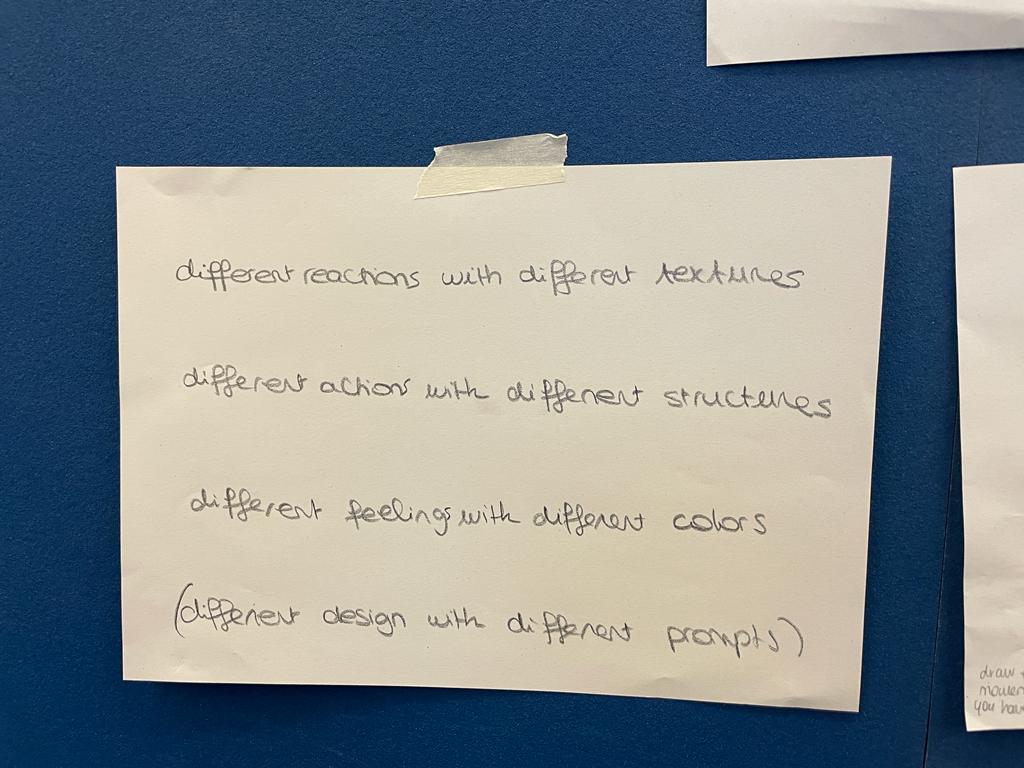 different reactions with different textures
different actions with different structures
different feelings with different colors
(different design with different prompts)
draw
you have